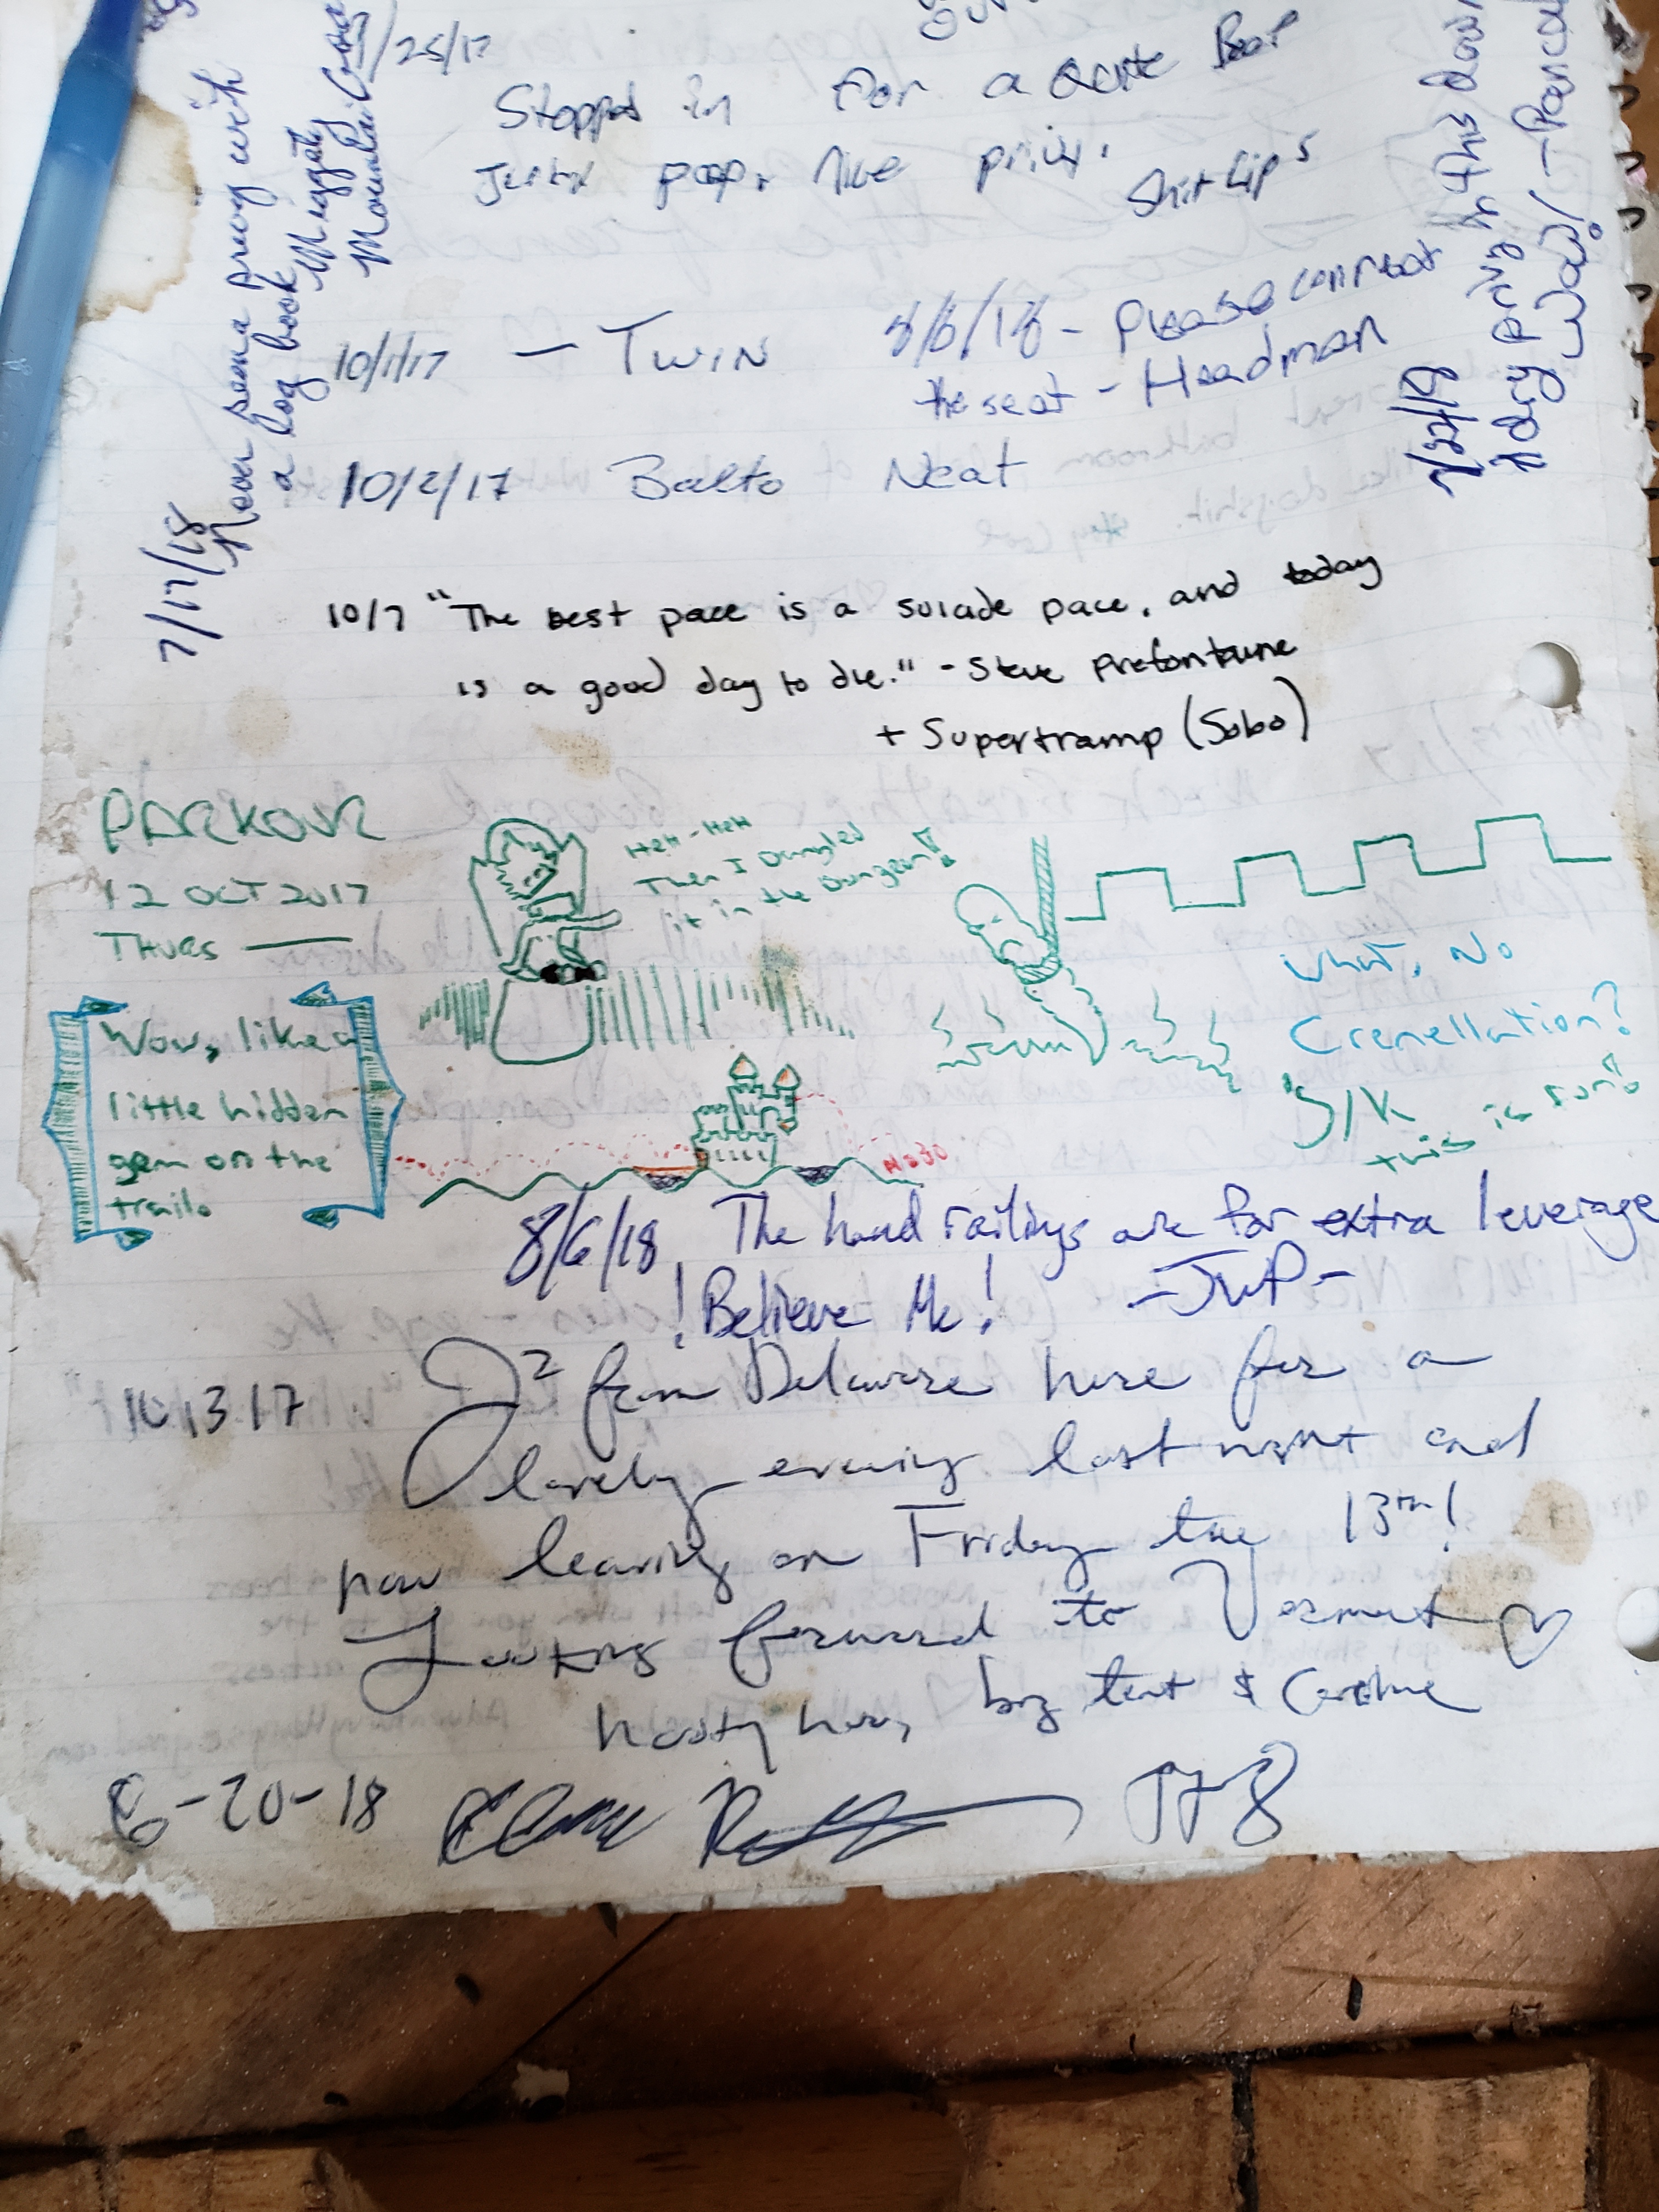 /25/17
Stopped in for a
poop. Nice privy.
Shit Lips
10/1/17 — TWIN
8/6/18 - Please connect
the seat - Headman
10/2/17 Balto Neat
10/7 "The best pace is a suicide pace, and today
is a good day to die." - Steve Prefontaine
+ Supertramp (Sobo)
PARKOUR
12 OCT 2017
THURS
Wow, like a
little hidden
gem on the
trail.
HEH-HEH
Then I Dangled
it in the Dungeon!
What, No
Crenellation?
J/K
this is fun!
NOBO
8/6/18 The hand railings are for extra leverage
! Believe Me! -JWP-
10 13 17 J² from Delaware here for a
lovely evening last night and
now leaving on Friday the 13th!
Looking forward to Vermont ♡
big tent & Caroline
6-20-18
7/17/18
Never seen a privy with
a log book
Maggoty
Mountain Goat
7/22/19
A dry privy in this down
Wow! - Pancake